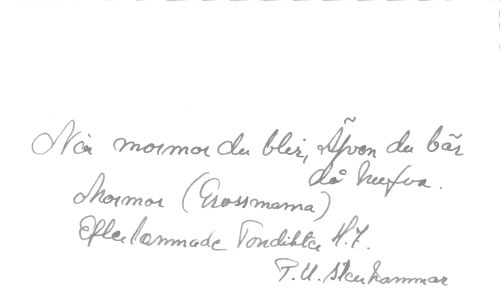 När mormor du blir, Äfven du bär
då hufva.
Mormor (Grossmama)
Efterlämnade Tondikter N:7.
P. U. Stenhammar